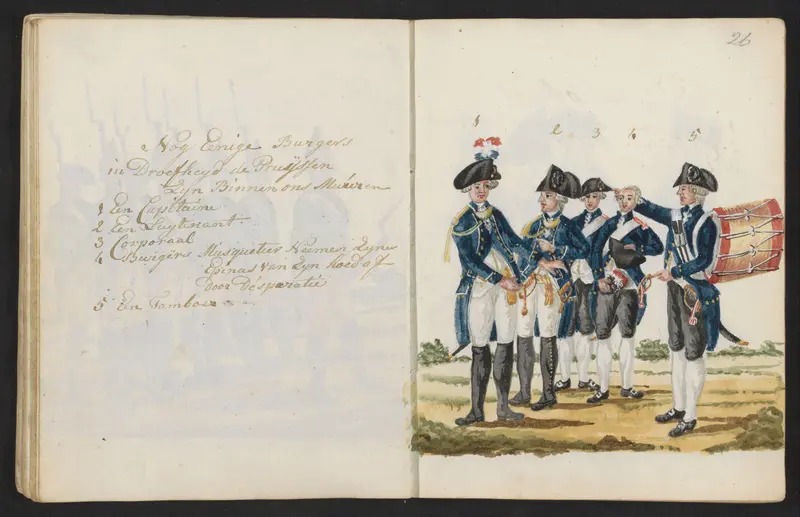 Nog Eenige Burgers
in Droefheyd de Pruijssen
Zyn Binnen ons Muuren
1 Een Capitaine
2 Een Luytenant
3 Corporaal
4 Burgers Musquetier Neemen Zyne
Epinas van Zyn hoed af
door Desparatie
5 Een Tamboer
26
1 2 3 4 5